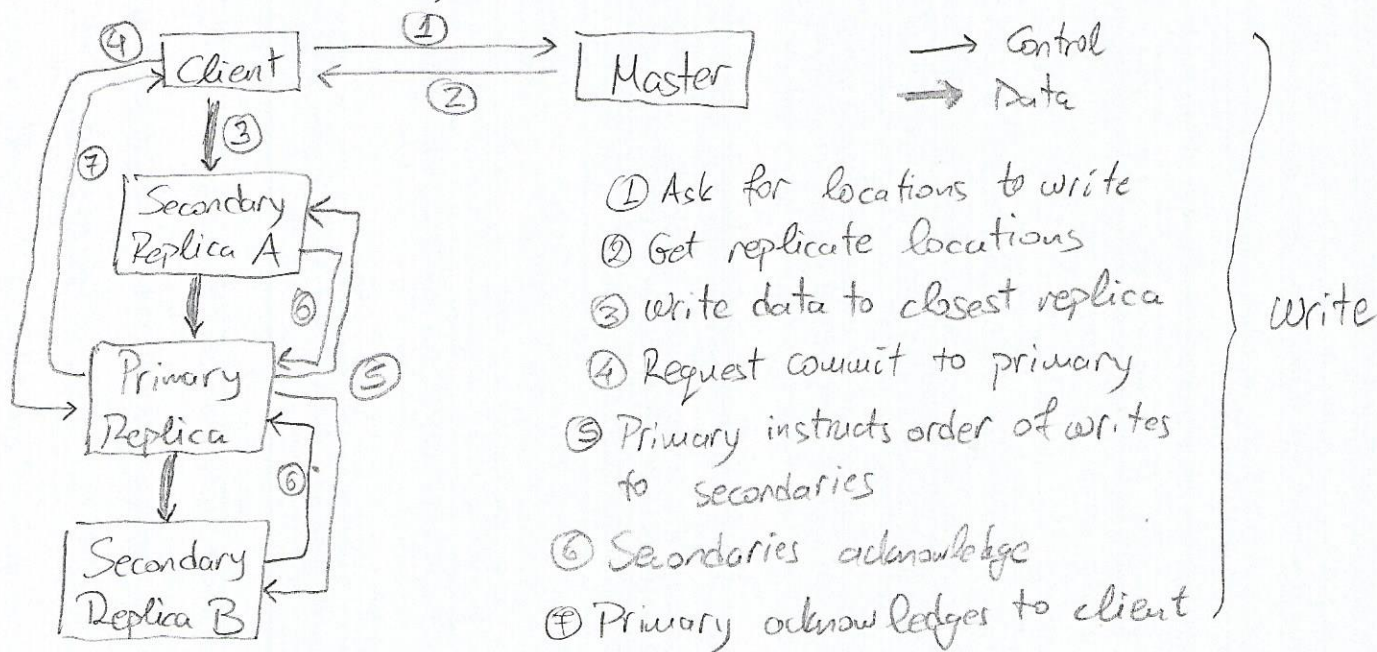 ④
Client
①
②
Master
→ Control
→ Data
③
⑦
Secondary
Replica A
⑥
⑤
Primary
Replica
⑥
Secondary
Replica B
① Ask for locations to write
② Get replicate locations
③ Write data to closest replica
④ Request commit to primary
⑤ Primary instructs order of writes
to secondaries
⑥ Secondaries acknowledge
⑦ Primary acknowledges to client
write